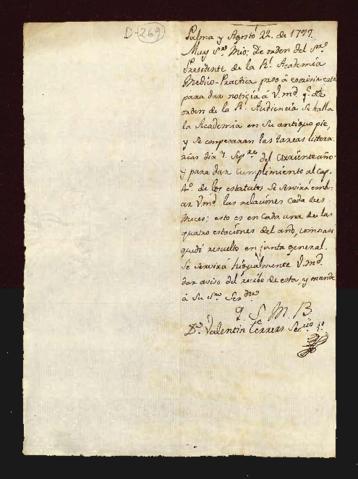 D-269
Palma y Agosto 22. de 1797.
Muy Sor. Mio: De orden del Sor.
Presidente de la Rl. Academia
Medico-Practica paso à escrivir esta
para dar noticia à Vmd. qe. de
orden de la Rl. Audiencia se halla
la Academia en su antiguo pie,
y se comperaran las tareas litera-
rias dia 1. Sepre. del corriente año
y para dar cumplimiento al cap.
4o. de los estatutos se servirà embi-
ar Vmd. las relaciones cada tres
meses; esto es en cada una de las
quatro estaciones del año, como se
quedò resuelto en junta general.
Se servirà igualmente Vmd.
dar aviso del recibo de esta, y mande
à su Sor. Serdor.
q. S. M. B
Dr. Valentin Terrers Secrio.